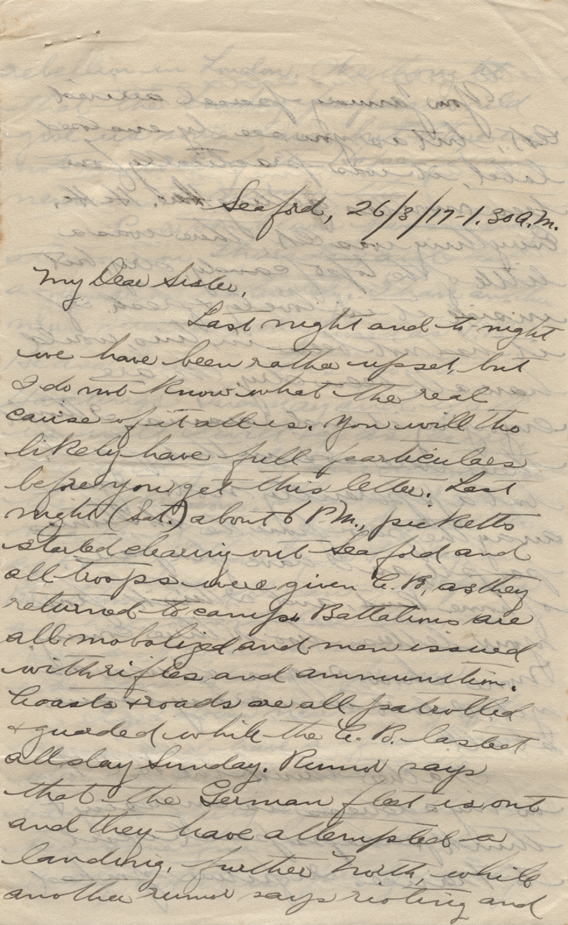 Seaford, 26/3/17-1.30A.M.
My Dear Sister,
Last night and to night
we have been rather upset, but
I do not know what the real
cause of it all is. You will tho
likely have full particulars
before you get this letter. Last
night (Sat.) about 6 P.M., picketts
started clearing out Seaford and
all troops were given C.B, as they
returned to camp. Battalions are
all mobolized and men issued
with rifles and ammunition.
Coasts & roads are all patrolled
& guarded while the C.B. lasted
all day Sunday. Rumor says
that the German fleet is out
and they have attempted a
landing, further North, while
another rumor says rioting and